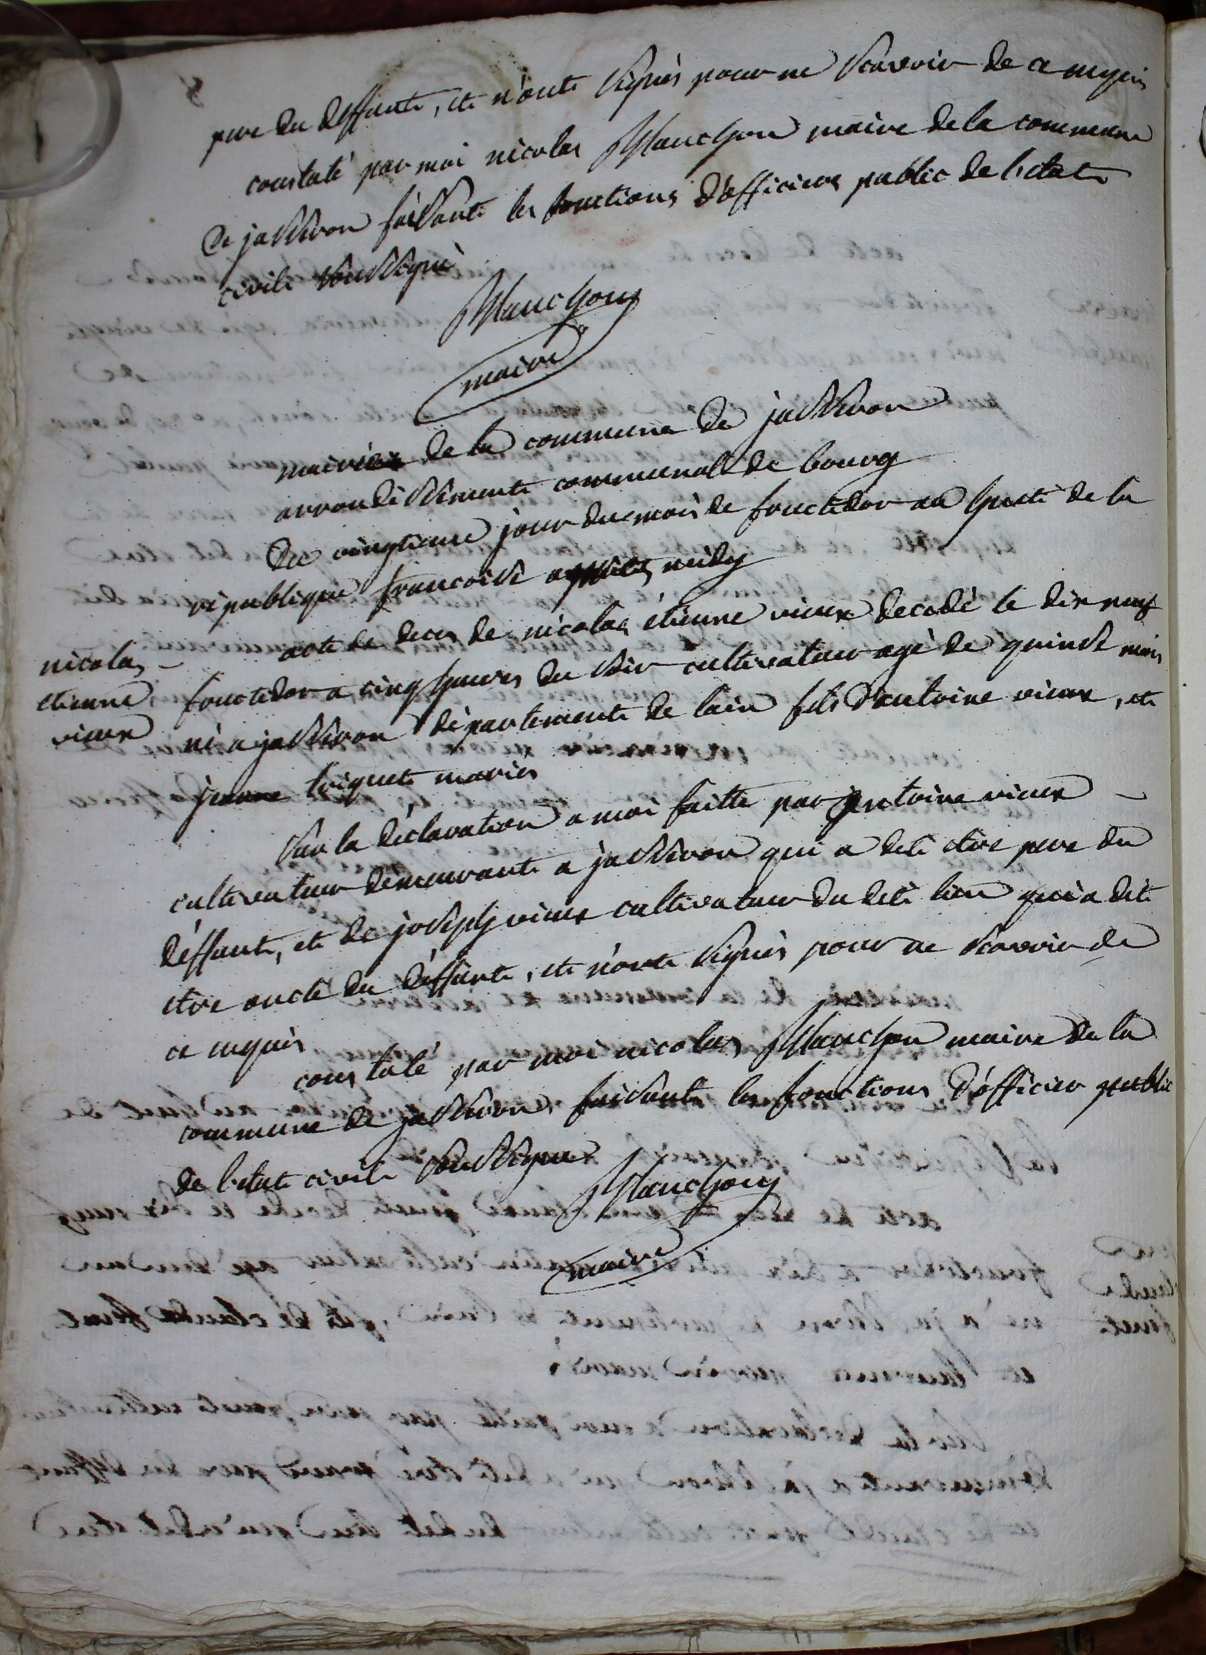 pere du deffunt, et n'onte signés pour ne scavoir de ce enquis
constaté par moi nicolas Manchon maire de la commune
de jasseron faisante les fonctions d'officiers public de l'etat
civile soussigné
Manchon
maire
mairie de la commune de jasseron
arrondissement communal de bourg
du vingtieme jour du mois de fructidor an huite de la
republique francoise midy
acte de deces de nicolas étienne vieux decedé le dix neuf
nicolas
etienne
vieux
fructidor a cinq heures du soir cultivateur agé de quinse mois
né a jasseron département de lain fils d'antoine vieux, et
jeanne mariés
sur la déclaration a moi faitte par antoine vieux
cultivateur démeurante a jasseron qui a dit etre pere du
déffunt, et de joseph vieux cultivateur du dit lieu qui a dit
etre oncle du déffunt, et n'onte signés pour ne scavoir de
ce enquis
constaté par moi nicolas Manchon maire de la
commune de jasseron faisante les fonctions d'officier public
de l'etat civile soussigné
Manchon
maire